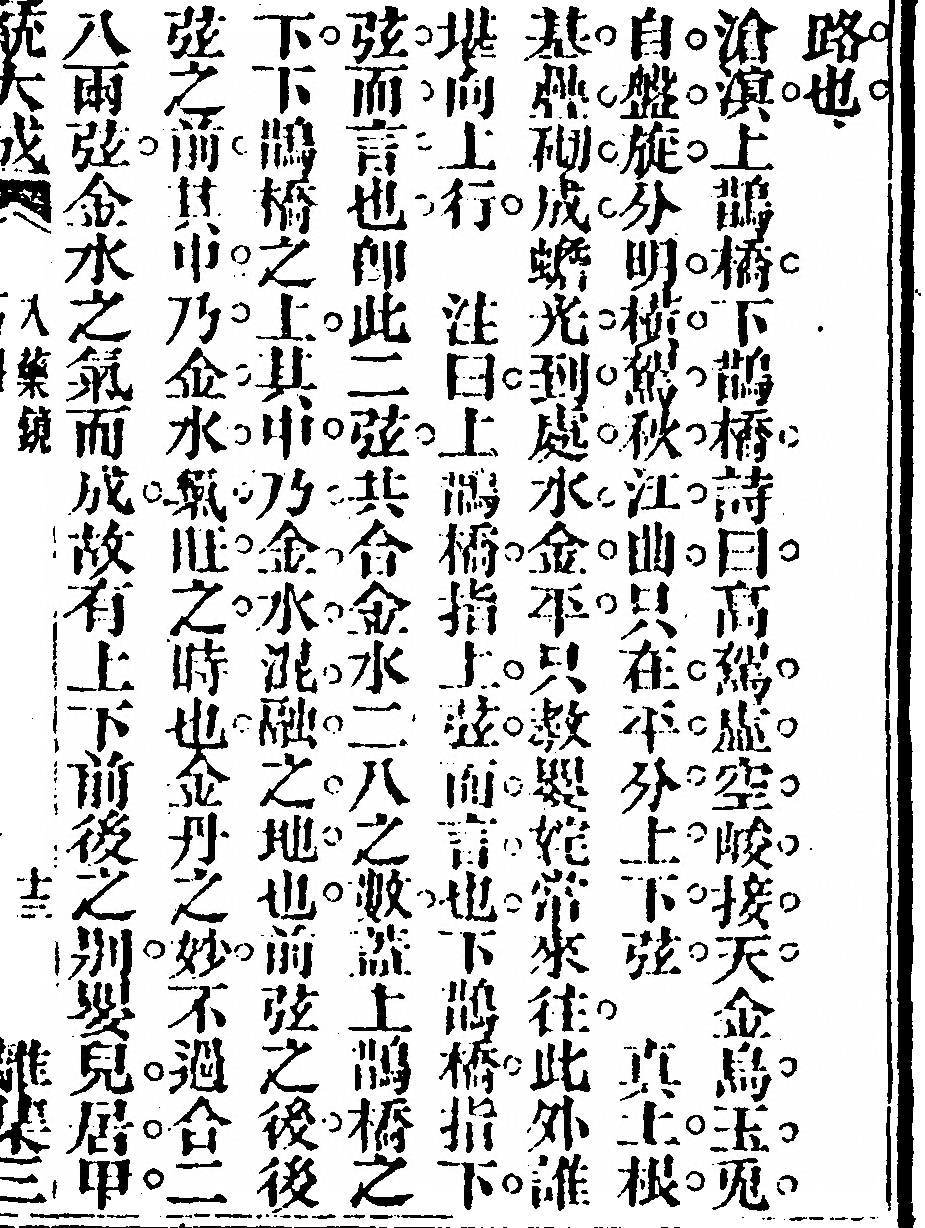 路也
滄溟上鵲橋下鵲橋詩曰高駕虛空峻接天金烏玉兎
自盤旋分明橫駕秋江曲只在平分上下弦　真土根
基鼎砌成蟾光到處水金平只教嬰姹常來往此外誰
堪向上行　注曰上鵲橋指上弦而言也下鵲橋指下
弦而言也卽此二弦共合金水二八之數蓋上鵲橋之
下下鵲橋之上其中乃金水混融之地也前弦之後後
弦之前其中乃金水氣旺之時也金丹之妙不過合二
八兩弦金水之氣而成故有上下前後之別嬰兒居甲
統大成
入藥鏡
十三
集三